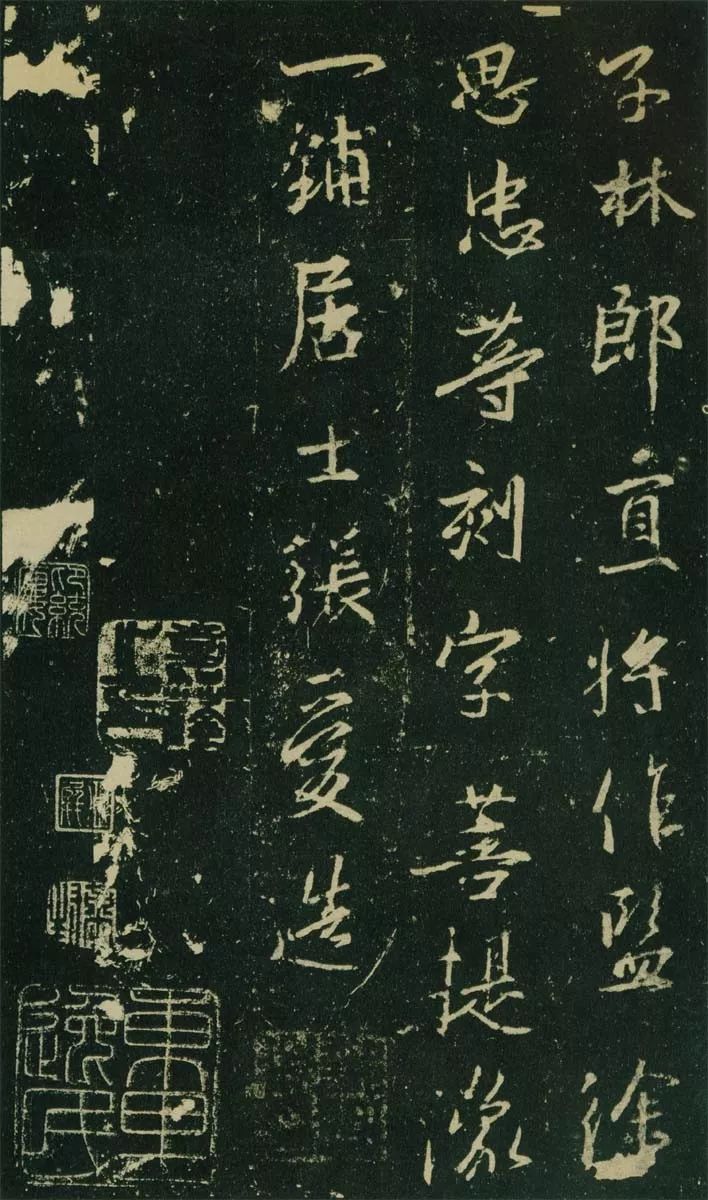 文林郎直將作監徐
思忠等刻字菩提像
一鋪居士張愛造